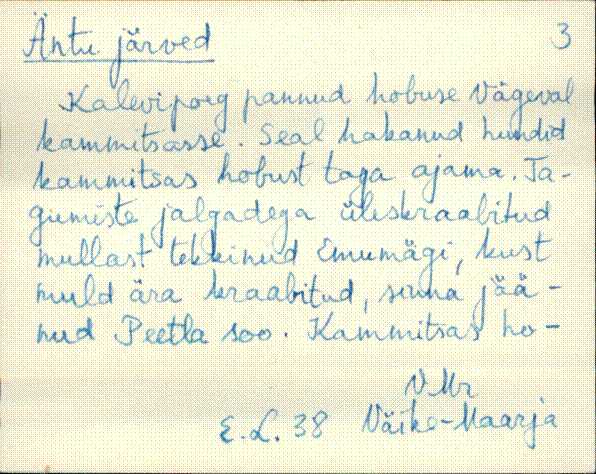 Äntu järved 3
Kalevipoeg pannud hobuse Vägeval
kammitsasse. Seal hakanud hundid
kammitsas hobust taga ajama. Ta-
gumiste jalgadega üleskraabitud
mullast tekkinud Emumägi, kust
muld ära kraabitud, sinna jää-
nud Peetla soo. Kammitsas ho-
V.Mr
E.L. 38 Väike-Maarja